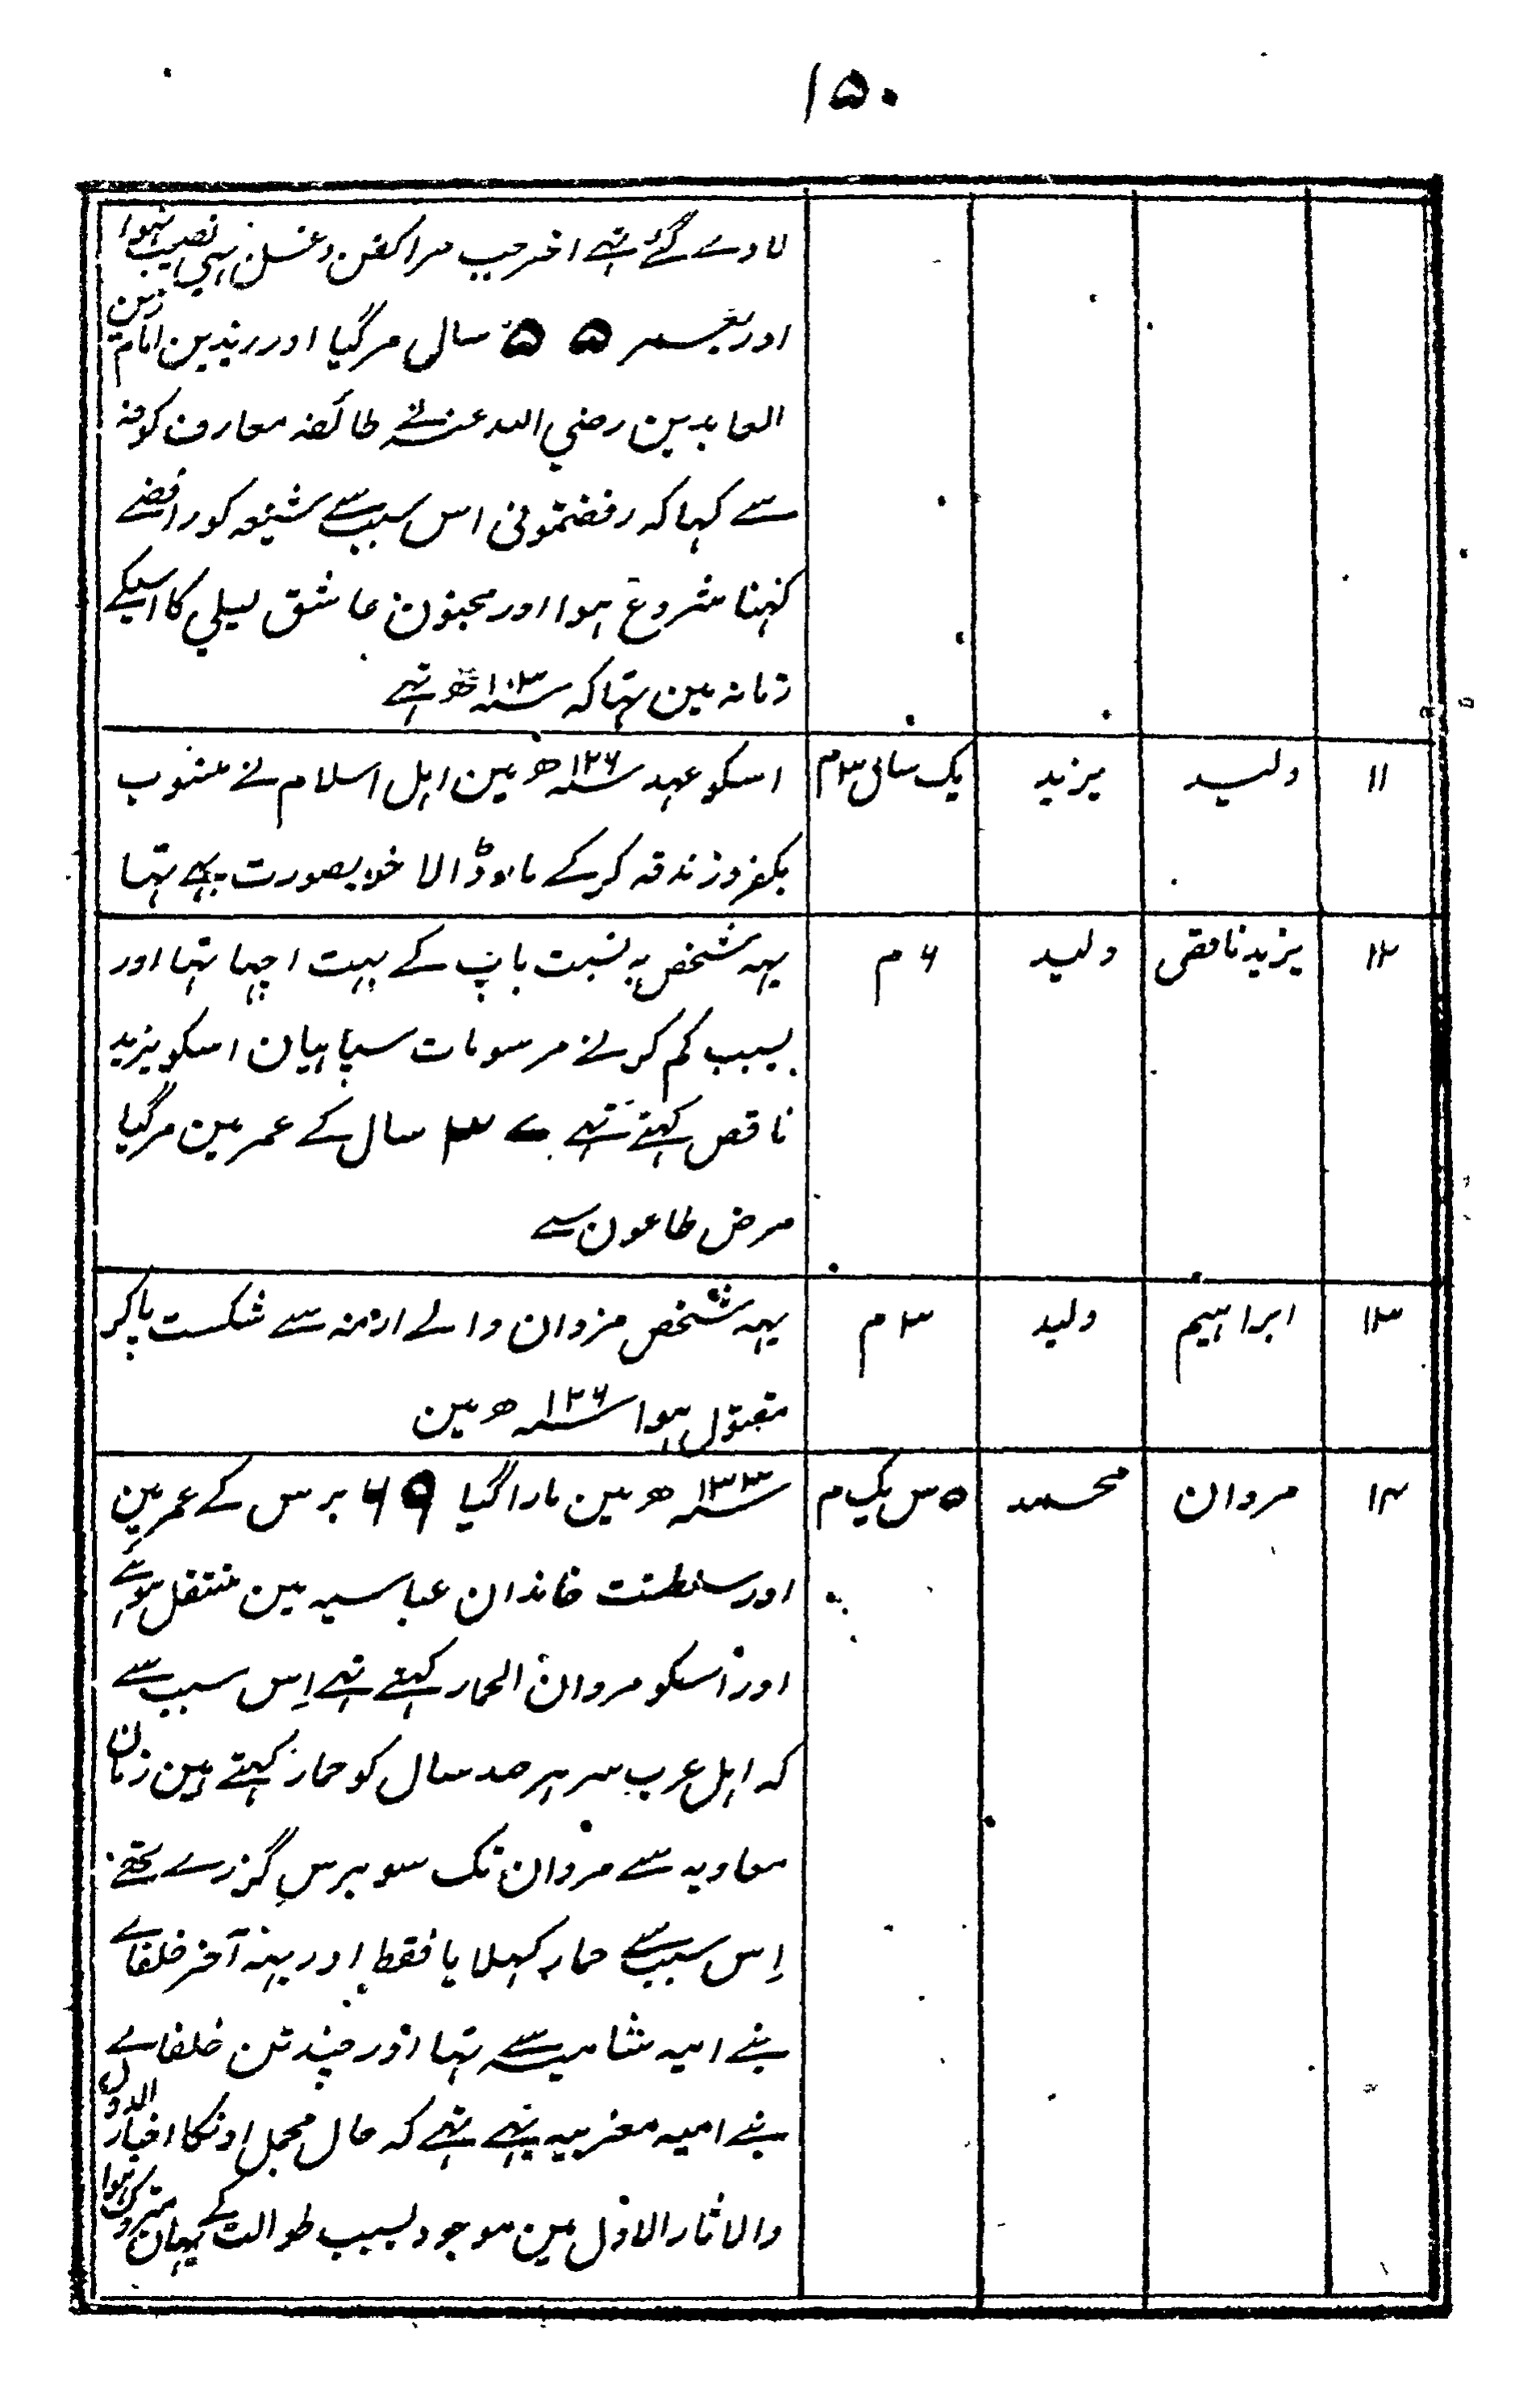 ۱۵۰
لادے گئے تہے اخر جب مرا کفن و غسل بہی نصیب نہوا
اور بعمر ۵۵ سالی مرگیا اور زید بن امام زین
العابدین رضي اللہ عنہ نے طائفہ معارف کوفہ
سے کہا کہ رفضتمونی اس سبب سے شیعہ کو رافضے
کہنا شروع ہوا اور مجنون عاشق لیلي کا اسیکے
زمانہ مین تہا کہ سنہ ۱۰۳ھ تہے
۱۱ ولید یزید یک سال ۳م اسکو عہد سنہ ۱۲۶ھ مین اہل اسلام نے منسوب
بکفر و زندقہ کرکے مار ڈالا خوبصورت بہے تہا
۱۲ یزید ناقص ولید ۶م یہہ شخص بہ نسبت باپ کے بہت اچہا تہا اور
بسبب کم کرنے مرسومات سپاہیان اسکو یزید
ناقص کہتے تہے ۳۷ سال کے عمر مین مرگیا
مرض طاعون سے
۱۳ ابراہیم ولید ۳م یہہ شخص مروان والے ارمنہ سے شکست پاکر
مقتول ہوا سنہ ۱۲۶ھ مین
۱۴ مروان محمد ۵س یک م سنہ ۱۳۳ھ مین مارا گیا ۶۹ برس کے عمر مین
اور سلطنت خاندان عباسیہ مین منتقل ہوئے
اور اسکو مروان الحمار کہتے تہے اِس سبب سے
کہ اہل عرب سر ہر صد سال کو حمار کہتے ہین زمان
معاویہ سے مروان تک سو برس گزرے تھے
اِس سبب سے حمار کہلایا فقط اور یہہ آخر خلفاے
بنے امیہ شامیہ سے تہا اور چند تن خلفاے
بنے امیہ مغربیہ بہے تہے کہ حال مجمل اونکا اخبار الدول
والاثار الاول مین موجود بسبب طوالت کے یہان متروک ہوا